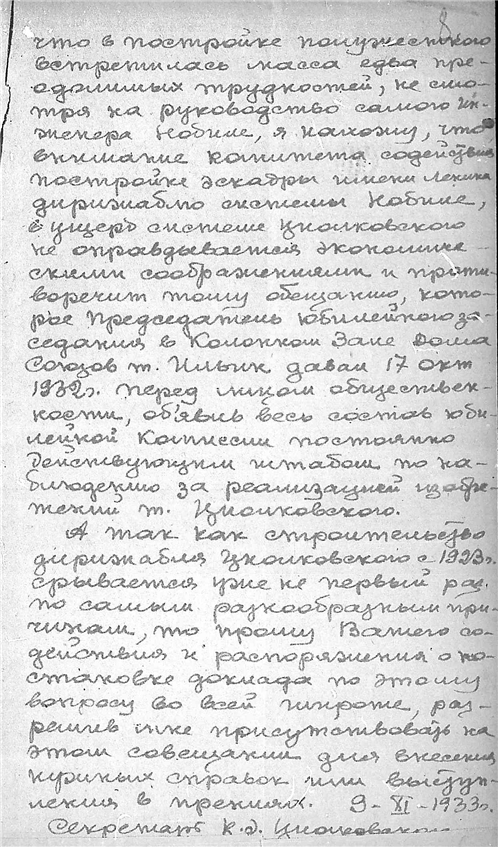 что в постройке полужесткого
встретилась масса едва пре-
одолимых трудностей, не смо-
тря на руководство самого ин-
женера Нобиле, я нахожу, что
внимание комитета содействия
постройке эскадры имени Ленина
дирижаблю системы Нобиле,
в ущерб системе Циолковского
не оправдывается экономиче-
скими соображениями и проти-
воречит тому обещанию, кото-
рое председатель юбилейного за-
седания в Колонном Зале Дома
Союзов т. Ильин давал 17 окт
1932г. перед лицом обществен-
ности, об'явив весь состав юби-
лейной Комиссии постоянно
действующим штабом по на-
блюдению за реализацией изобре-
тений т. Циолковского.
А так как строительство
дирижабля Циолковского с 1923г.
срывается уже не первый раз,
по самым разнообразным при-
чинам, то прошу Вашего со-
действия и распоряжения о по-
становке доклада по этому
вопросу во всей широте, раз-
решив мне присутствовать на
этом совещании для внесения
нужных справок или выступ-
ления в прениях. 9-XI-1933г.
Секретарь К.Э. Циолковского